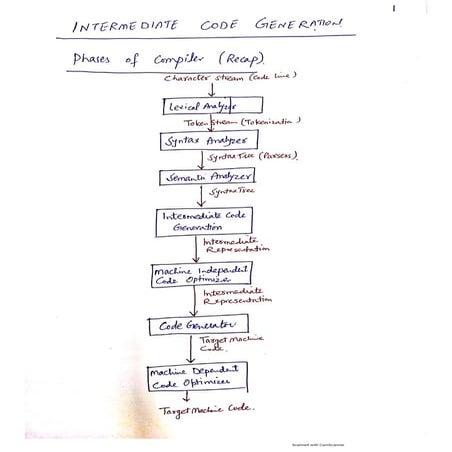 1
INTERMEDIATE CODE GENERATION
Phases of Compiler (Recap)
Character Stream (Code Line)
Lexical Analyzer
Token Stream (Tokenization)
Syntax Analyzer
Syntax Tree (Parsers)
Semantic Analyzer
Syntax Tree
Intermediate Code
Generation
Intermediate
Representation
Machine Independent
Code Optimizer
Intermediate
Representation
Code Generator
Target Machine
Code.
Machine Dependent
Code Optimizer
Target Machine Code.
Scanned with CamScanner